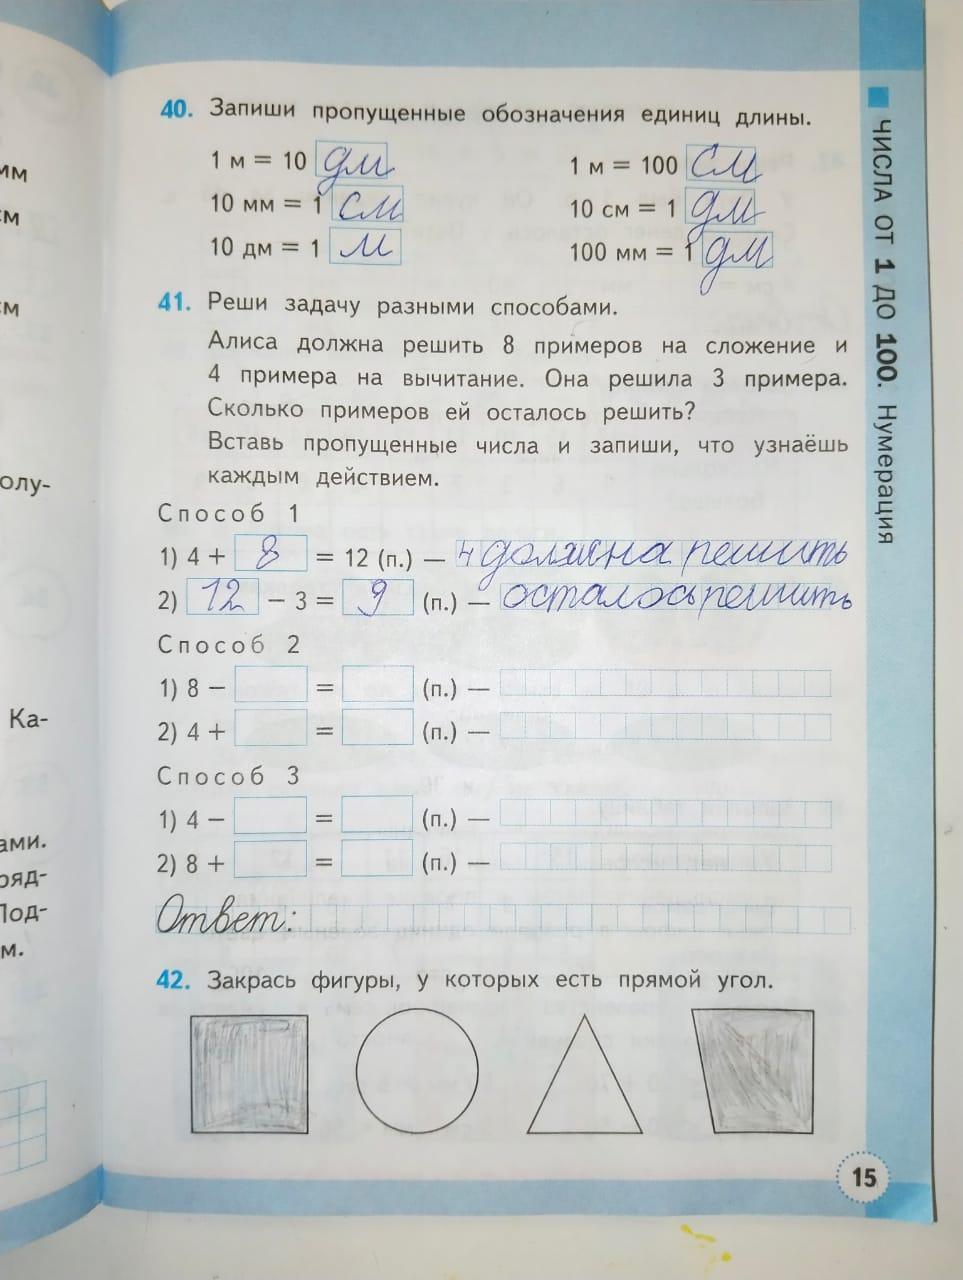 40. Запиши пропущенные обозначения единиц длины.
1 м = 10 дм
1 м = 100 см
10 мм = 1 см
10 см = 1 дм
10 дм = 1 м
100 мм = 1 дм
41. Реши задачу разными способами.
Алиса должна решить 8 примеров на сложение и
4 примера на вычитание. Она решила 3 примера.
Сколько примеров ей осталось решить?
Вставь пропущенные числа и запиши, что узнаёшь
каждым действием.
Способ 1
1) 4 + 8 = 12 (п.) — должна решить
2) 12 − 3 = 9 (п.) — осталось решить
Способ 2
1) 8 − = (п.) —
2) 4 + = (п.) —
Способ 3
1) 4 − = (п.) —
2) 8 + = (п.) —
Ответ:
42. Закрась фигуры, у которых есть прямой угол.
15
ЧИСЛА ОТ 1 ДО 100. Нумерация
мм
см
см
олу-
Ка-
ами.
ряд-
Под-
м.